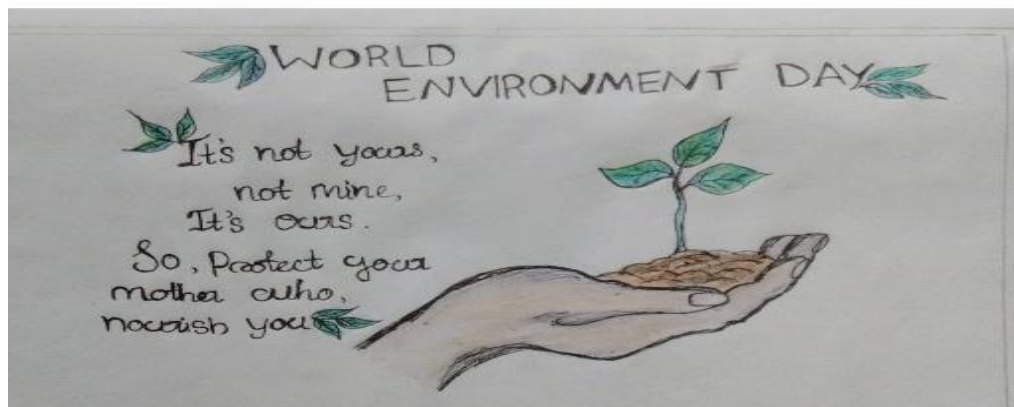 WORLD
ENVIRONMENT DAY
It's not yours,
not mine,
It's ours.
So, Protect your
mother who,
nourish you